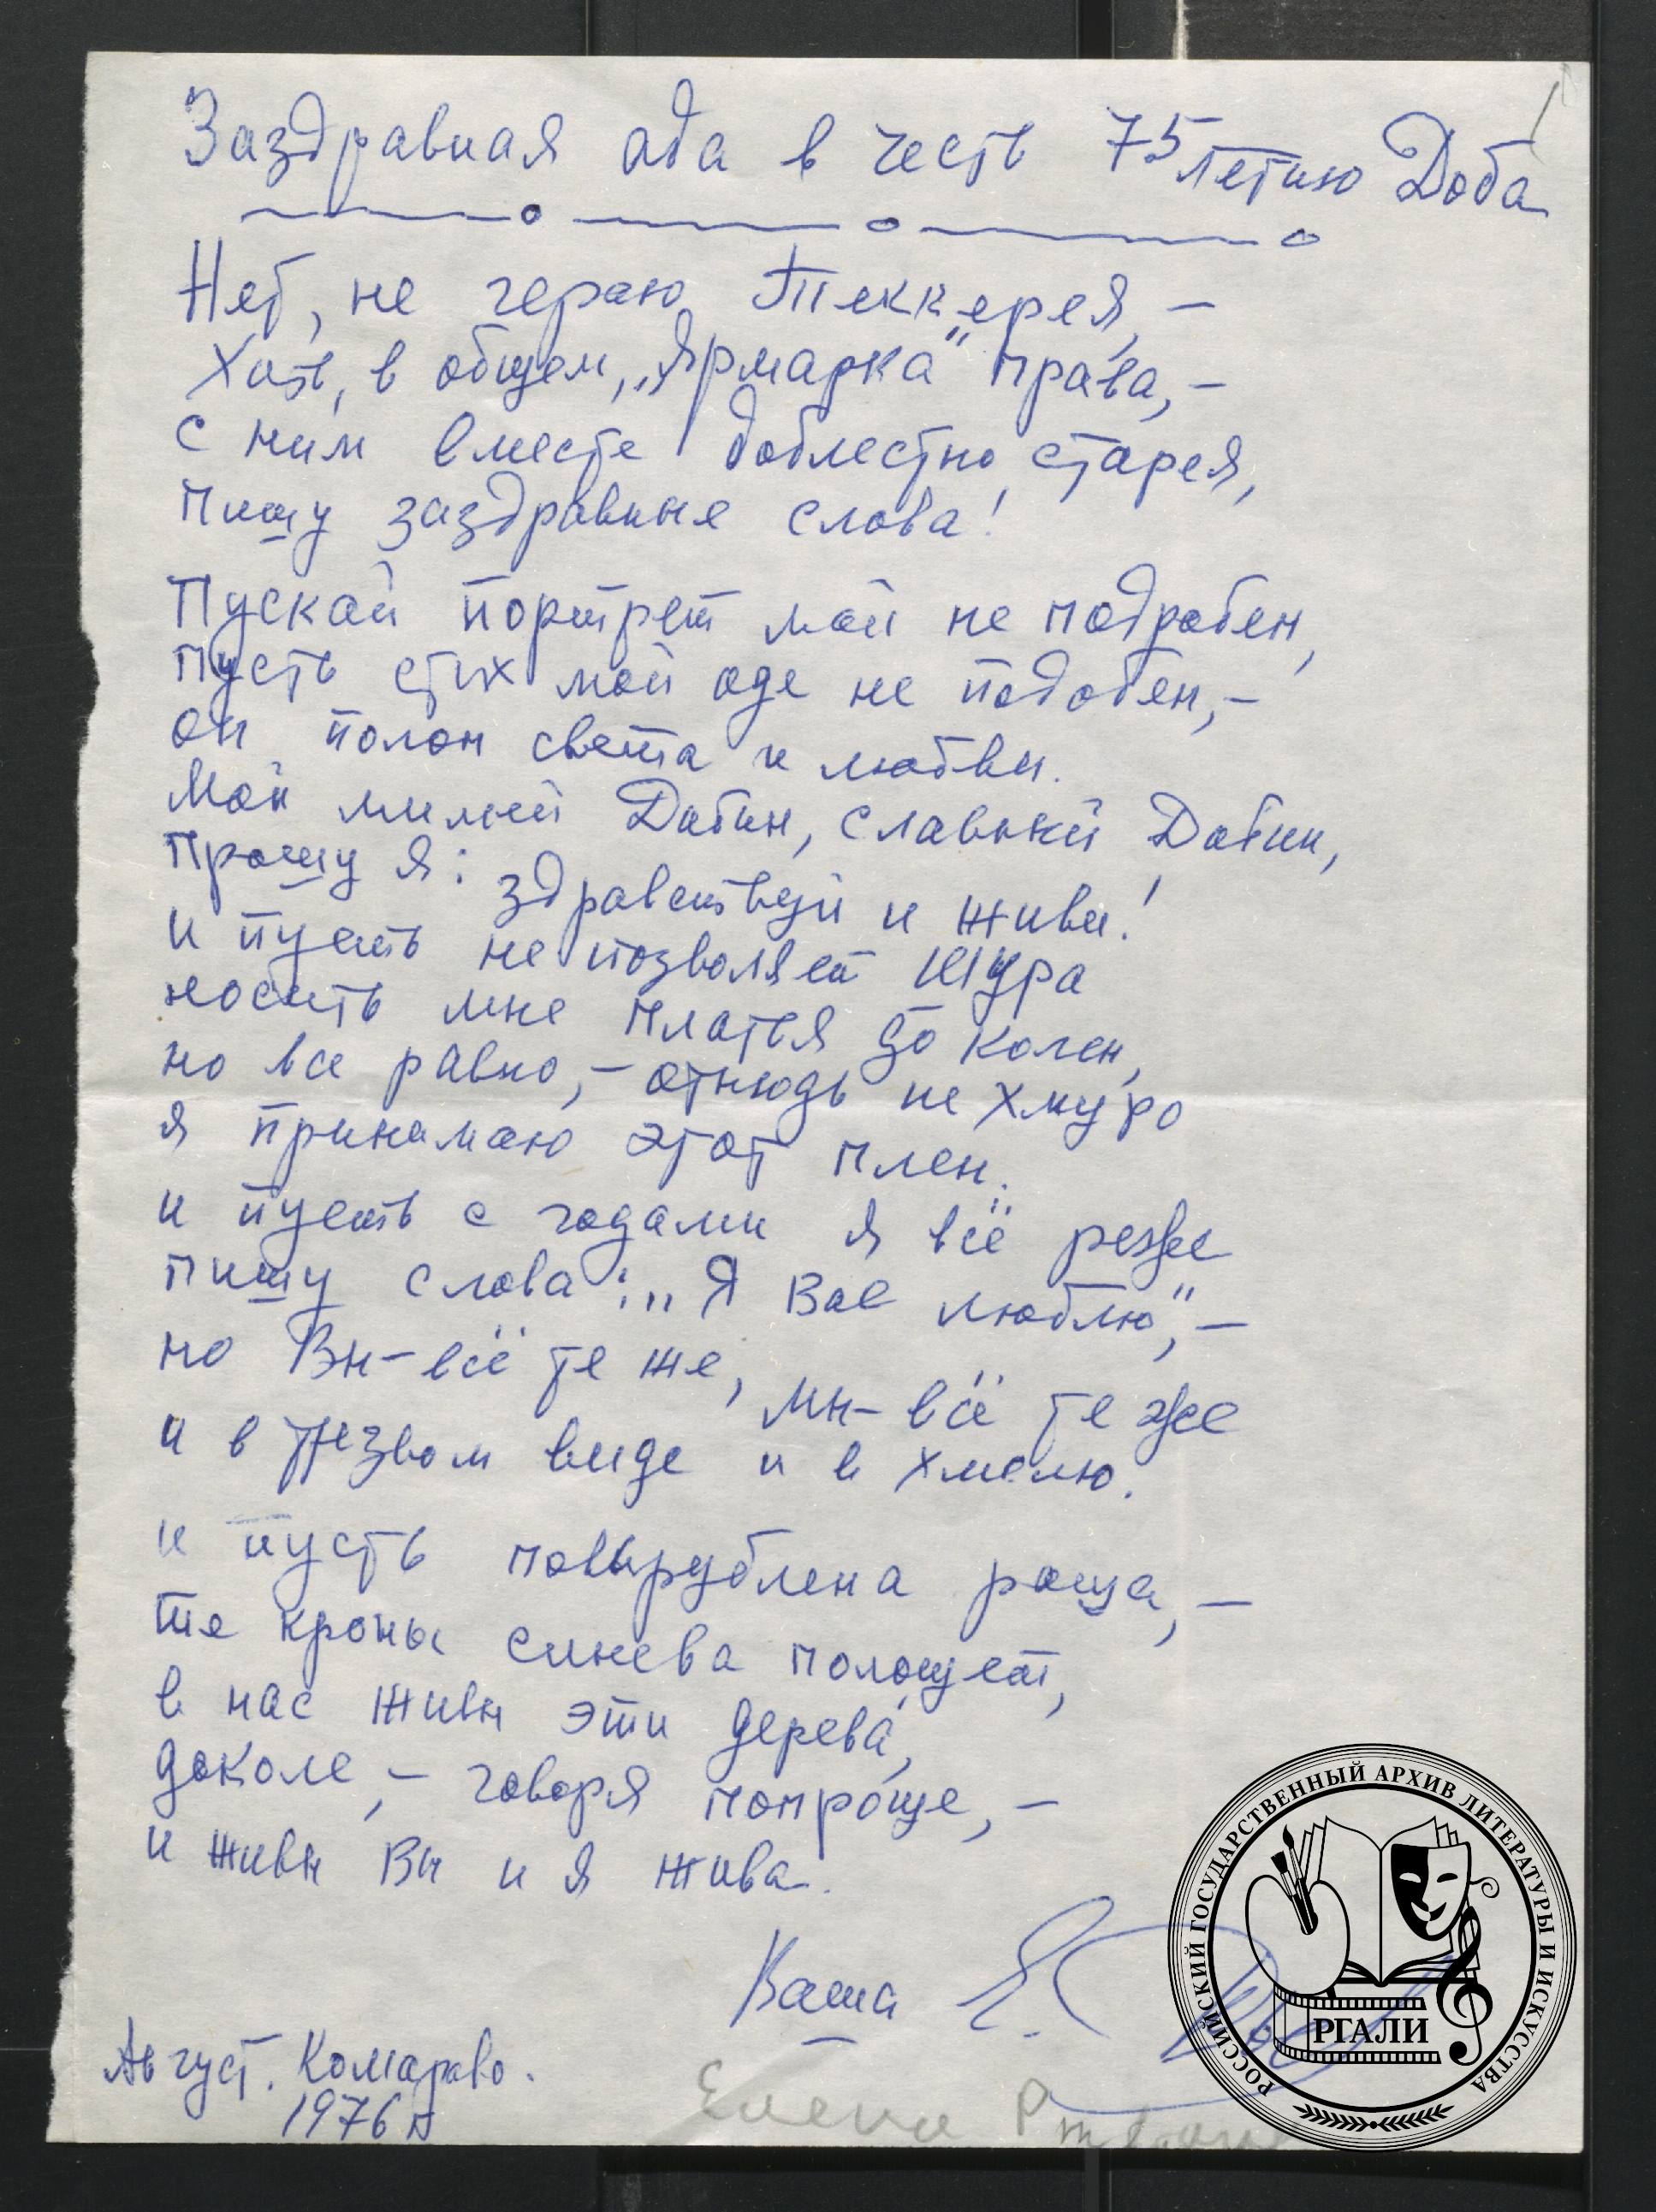 Заздравная ода в честь 75летию Доба
Нет, не чераю Теккерея, –
Хоть, в общем, „Ярмарка" права, –
с ним вместе доблестно старея,
пишу заздравные слова!
Пускай портрет мой не подробен,
пусть стих мой оде не подобен, –
он полон света и любви.
Мой милый Добин, славный Добин,
прошу я: здравствуй и живи!
и пусть не позволяет Шура
носить мне платья до колен,
но все равно, – отнюдь не хмуро
я принимаю этот плен.
и пусть с годами я всё реже
пишу слова: „Я Вас люблю", –
но Вы – всё те же, мы – всё те же
и в трезвом виде и в хмелю.
и пусть повырублена роща, –
те кроны синева полощет,
в нас живы эти дерева́,
доколе, – говоря попроще, –
и живы Вы и я жива.
Ваша Е.
Август. Комарово.
1976 г
Елена
РОССИЙСКИЙ ГОСУДАРСТВЕННЫЙ АРХИВ ЛИТЕРАТУРЫ И ИСКУССТВА
РГАЛИ